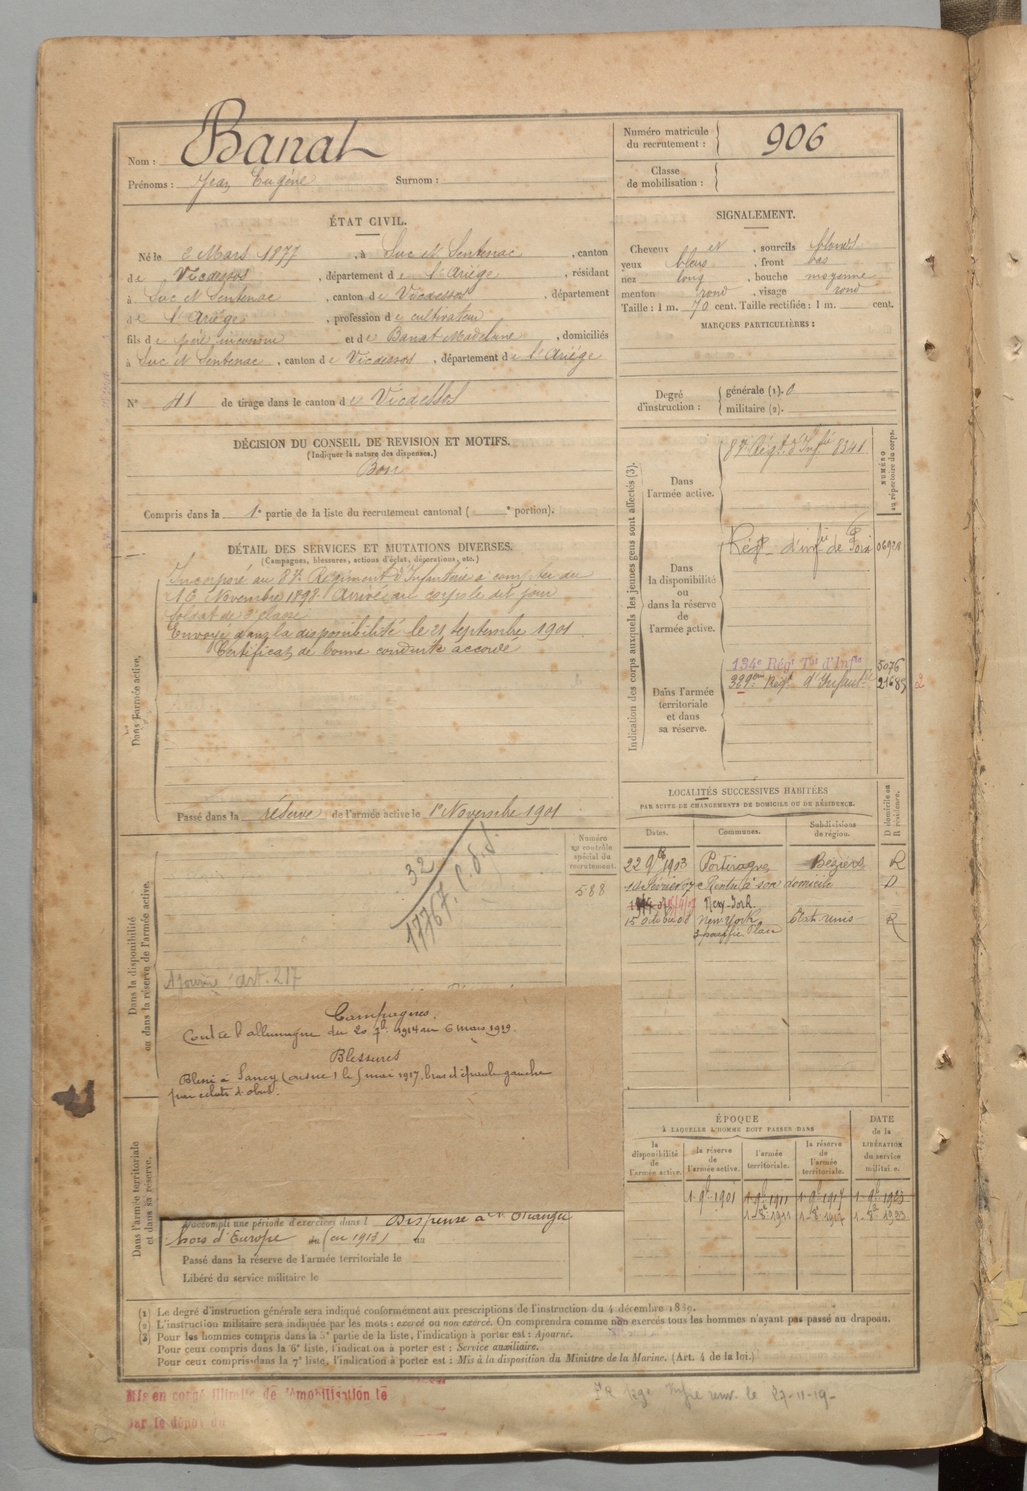 Nom : Banat
Prénoms : Jean Eugène Surnom :
Numéro matricule du recrutement : 906
Classe de mobilisation :
ÉTAT CIVIL.
Né le 2 Mars 1877, à Suc et Sentenac, canton
de Vicdessos, département de l'Ariège, résidant
à Suc et Sentenac, canton de Vicdessos, département
de l'Ariège, profession de cultivateur
fils de père inconnu et de Banat Madelaine, domiciliés
à Suc et Sentenac, canton de Vicdessos, département de l'Ariège
N° 41 de tirage dans le canton de Vicdessos
SIGNALEMENT.
Cheveux et, sourcils blonds
yeux bleus, front bas
nez long, bouche moyenne
menton rond, visage rond
Taille : 1 m. 70 cent. Taille rectifiée : 1 m. cent.
MARQUES PARTICULIÈRES :
Degré d'instruction : générale (1). 0
militaire (2).
DÉCISION DU CONSEIL DE REVISION ET MOTIFS.
(Indiquer la nature des dispenses.)
Bon
Compris dans la 1e partie de la liste du recrutement cantonal ( e portion).
DÉTAIL DES SERVICES ET MUTATIONS DIVERSES.
(Campagnes, blessures, actions d'éclat, décorations, etc.)
Dans l'armée active.
Incorporé au 87e Régiment d'Infanterie à compter du
16 Novembre 1898. Arrivé au corps le dit jour
Soldat de 2e classe
Envoyé dans la disponibilité le 21 Septembre 1901
Certificat de bonne conduite accordé
Passé dans la réserve de l'armée active le 1er Novembre 1901
Indication des corps auxquels les jeunes gens sont affectés (3).
NUMÉRO au répertoire du corps.
Dans l'armée active.
87e Régt d'Infie 8341
Dans la disponibilité ou dans la réserve de l'armée active.
Régt d'infie de Foix
Dans l'armée territoriale et dans sa réserve.
134e Régt Tal d'Infie 5076
329em Régt d'Infanie 21685
LOCALITÉS SUCCESSIVES HABITÉES
PAR SUITE DE CHANGEMENTS DE DOMICILE OU DE RÉSIDENCE.
Dates. Communes. Subdivisions de région. D domicile ou R résidence.
22 9bre 1903 Portiragnes Béziers R
Février 07 Rentré à son domicile D
New-York
15 octobre 08 New York États unis R
Dans la disponibilité ou dans la réserve de l'armée active.
Numéro au contrôle spécial du recrutement.
588
32
17767
Ajourné art. 217
Campagnes.
Contre l'allemagne du 20 7bre 1914 au 6 mars 1919.
Blessures
Blessé à Sancy (aisne) le 5 mai 1917, bras et épaule gauche
par éclats d'obus.
Dans l'armée territoriale et dans sa réserve.
A accompli une période d'exercices dans l Dispensé à l'Etranger
hors d'Europe du (en 1913) au
Passé dans la réserve de l'armée territoriale le
Libéré du service militaire le
ÉPOQUE
À LAQUELLE L'HOMME DOIT PASSER DANS
DATE de la LIBÉRATION du service militaire.
la disponibilité de l'armée active. la réserve de l'armée active. l'armée territoriale. la réserve de l'armée territoriale.
1. 9bre 1901 1. 9bre 1911 1. 9bre 1917 1. 9bre 1923
1-8bre 1911 1-8bre 1917 1-8bre 1923
(1) Le degré d'instruction générale sera indiqué conformément aux prescriptions de l'instruction du 4 décembre 1889.
(2) L'instruction militaire sera indiquée par les mots : exercé ou non exercé. On comprendra comme non exercés tous les hommes n'ayant pas passé au drapeau.
(3) Pour les hommes compris dans la 5e partie de la liste, l'indication à porter est : Ajourné.
Pour ceux compris dans la 6e liste, l'indication à porter est : Service auxiliaire.
Pour ceux compris dans la 7e liste, l'indication à porter est : Mis à la disposition du Ministre de la Marine. (Art. 4 de la loi.)
Mis en congé illimité de démobilisation le
par le dépôt du
renv. le 27-11-19-